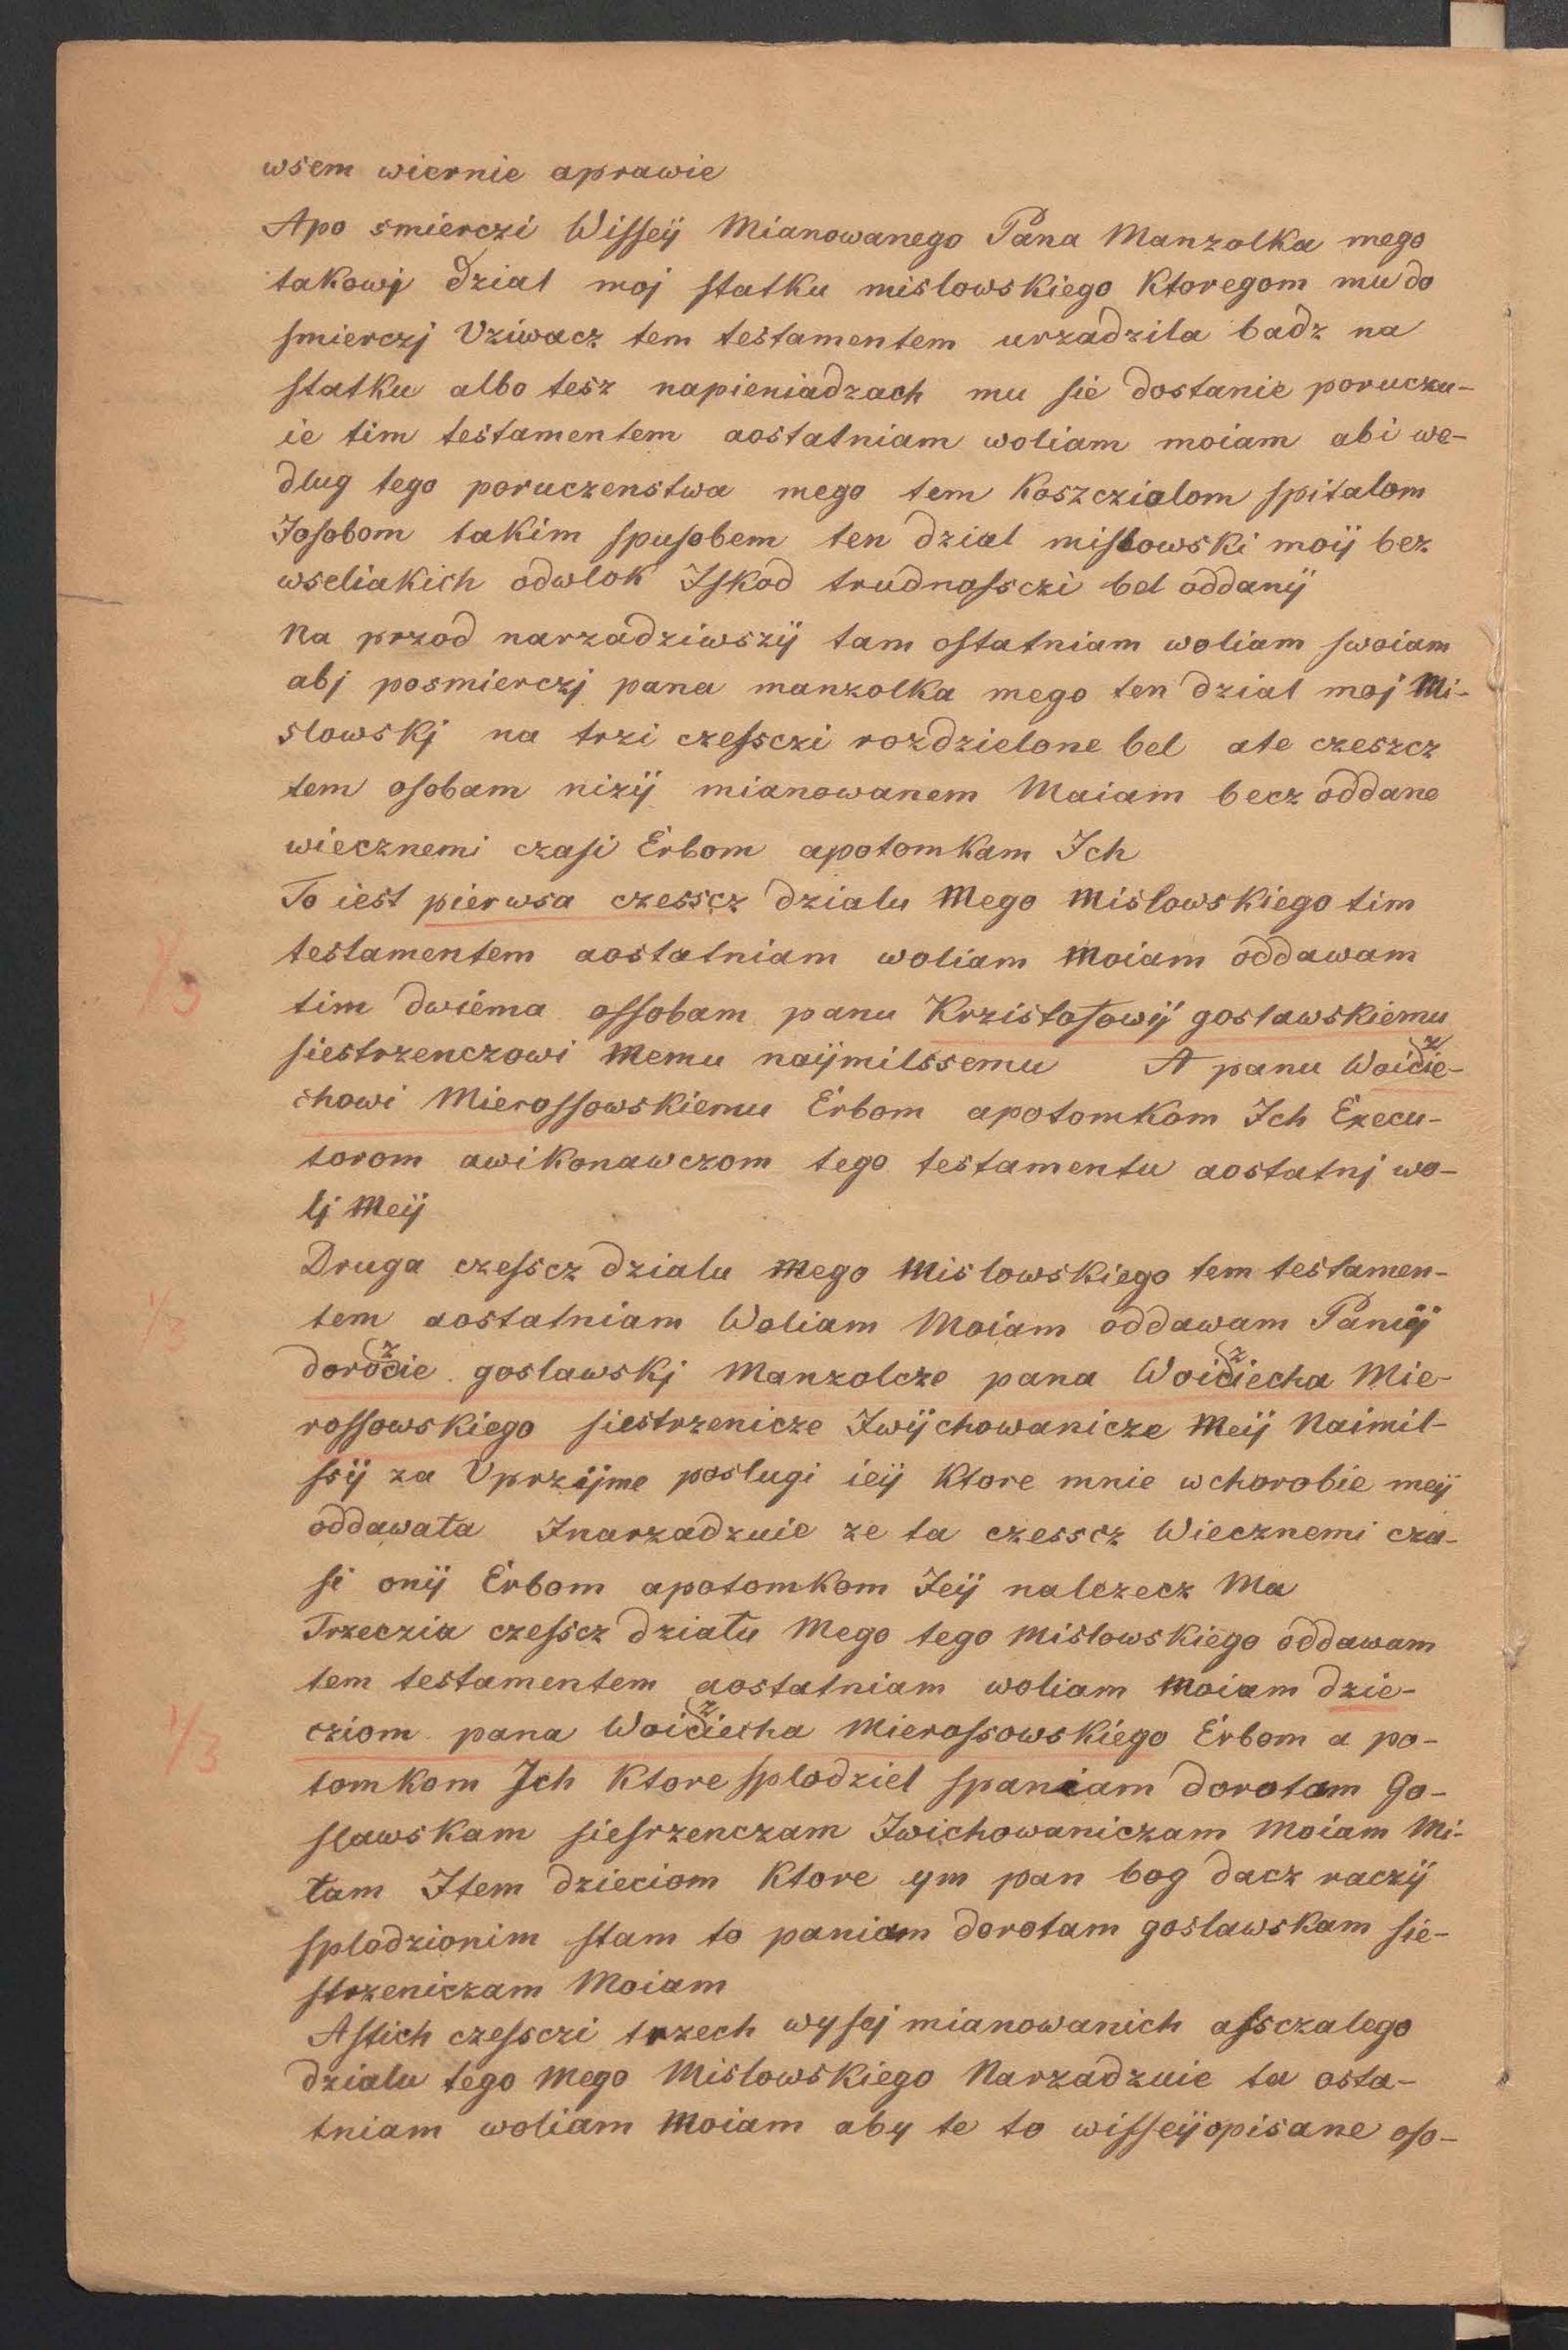 wsem wiernie aprawie
Apo smierczi Wiſſeÿ Mianowanego Pana Manzolka mego
takowj dzial moj ſtatku mislowskiego Ktoregom mu do
ſmierczj Vziwacz tem testamentem urzadzila badz na
ſtatku albo tesz napieniadzach mu ſie dostanie poruczu-
ie tim testamentem aostatniam woliam moiam abi we-
dlug tego poruczenstwa mego tem Koszczialom ſpitalom
Joſobom takim ſpuſobem ten dzial miſlowski moÿ bez
wseliakich odwlok Jſkod trudnoſsczi bel oddanÿ
Na przod narzadziwszÿ tam oſtatniam woliam ſwoiam
abj posmierczj pana manzolka mego ten dzial moj Mi-
slowskj na trzi czeſsczi rozdzielone bel ate czeszcz
tem oſobam nizÿ mianowanem Maiam becz oddane
wiecznemi czaſi Erbom apotomkam Jch
To iest pierwsa czesscz dzialu Mego Mislowskiego tim
testamentem aostatniam woliam Moiam oddawam
tim dwiema oſſobam panu Krzistoſowÿ goslawskiemu
ſiestrzenczowi Memu naÿmilssemu A panu Woiczie-
chowi Mieroſſowskiemu Erbom apotomkom Jch Execu-
torom awikonawczom tego testamentu aostatnj wo-
lj Meÿ
Druga czeſscz dzialu Mego Mislowskiego tem testamen-
tem aostatniam Woliam Moiam oddawam Paniÿ
doroczie goslawskj Manzolcze pana Woicziecha Mie-
roſſowskiego ſiestrzenicze Jwÿchowanicze Meÿ Naimil-
ſsÿ za Vprzÿme poslugi ieÿ Ktore mnie wchorobie meÿ
oddawała Jnarzadzuie ze ta czesscz Wiecznemi cza-
ſi onÿ Erbom apotomkom Jeÿ nalezecz Ma
Trzeczia czeſscz działu Mego tego Mislowskiego oddawam
tem testamentem aostatniam woliam Moiam dzie-
cziom pana Woicziecha Mieroſsowskiego Erbom a po-
tomkom Jch Ktore ſplodziel ſpaniam dorotam Go-
ſlawskam ſieſrzenczam Jwichowaniczam Moiam Mi-
łam Jtem dzieciom Ktore ym pan bog dacz raczÿ
ſplodzionim ſtam to paniam dorotam goslawskam ſie-
ſtrzeniczam Moiam
Aſtich czeſsczi trzech wyſej mianowanich aſsczalego
dzialu tego Mego Mislowskiego Narzadzuie ta osta-
tniam woliam Moiam aby te to wiſſeÿopisane oſo-
1/3
1/3
1/3